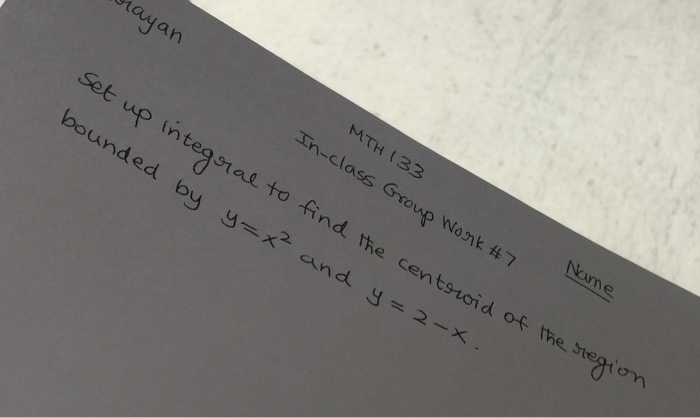 MTH 133
In-class Group Work #7
Name
Set up integral to find the centroid of the region
bounded by y=x² and y=2-x.